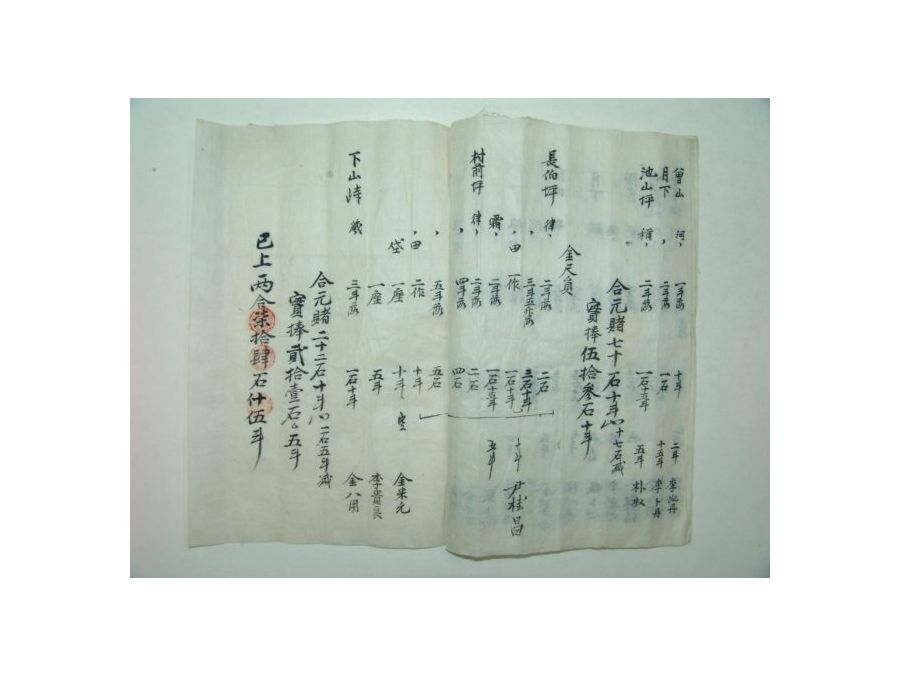 曾山 河、 一斗落 十斗 二斗
月下 、 二斗落 一石 十五斗 李卜丹
池山坪 稱、 二斗落 一石十五斗 五斗 朴奴
合元賭七十石十斗 十七石減
實捧伍拾參石十斗
金尺員
長伯坪 律、 二斗落 二石
、 三斗五升落 三石十斗
、田 一作 一石十斗 十斗 尹桂昌
霜、 二斗落 一石十五斗 五斗
村前坪 律、 二斗落 二石
、 四斗落 四石
、 五斗落 五石
、田 二作 十斗
垈 一座 十斗 金米元
一座 五斗 李貴良
下山 歲 三斗落 一石十斗 金八用
合元賭二十二石十斗 一石五斗減
實捧貳拾壹石五斗
已上兩合柒拾肆石什伍斗